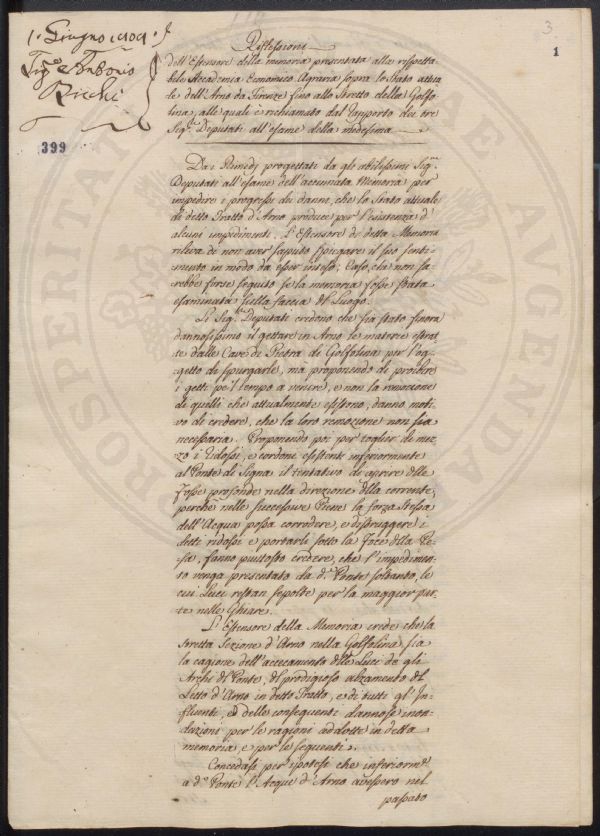 1. Giugno 1804.
Sig.e Antonio
Ricchi
399
3
1
Riflessioni
dell'Estensore della memoria presentata alla rispetta
bile Accademia Economico Agraria sopra lo Stato attua
le dell'Arno da Firenze fino allo Stretto della Golfo
lina, alle quali è richiamato dal rapporto dei tre
Sig.ri Deputati all'esame della medesima
Dai Rimedj progettati da gli abilissimi Sig.ri
Deputati all'esame dell'accennata Memoria per
impedire i progressi dei danni, che lo Stato attuale
di detto Tratto d'Arno produce per l'esistenza d'
alcuni impedimenti. L'Estensore di detta Memoria
rileva di non aver saputo spiegare il suo senti
mento in modo da esser inteso; Caso, che non sa
rebbe forse seguito se la memoria fosse stata
esaminata sulla faccia del Luogo.
I Sig.ri Deputati credono che sia stato finora
dannosissimo il gettare in Arno le materie estrat
te dalle Cave di Pietra di Golfolina per l'og
getto di spurgarle, mà proponendo di proibire
i getti pe'l tempo a venire, e non la remozione
di quelli che attualmente esistono, danno moti
vo di credere, che la loro remozione non sia
necessaria. Proponendo poi per toglier di mez
zo i Ridossi, e cordoni esistenti inferiormente
al Ponte di Signa il tentativo di aprire delle
Fosse profonde nella direzione della corrente,
perchè nelle successive Piene la forza stessa
dell'Acqua possa corrodere, e distruggere i
detti ridossi e portarli sotto la Foce della Pe
sa, fanno piuttosto credere, che l'impedimen
to venga presentato da d.o Ponte soltanto, le
cui Luci restan sepolte per la maggior par
te nelle Ghiare.
L'Estensore della Memoria crede che la
stretta Sezione d'Arno nella Golfolina, sia
la cagione dell'accecamento delle Luci de gli
Archi del Ponte, del prodigioso alzamento del
Letto d'Arno in detto Tratto, e di tutti gl'In
fluenti, e delle conseguenti dannose inon
dazioni per le ragioni addotte in detta
memoria e per le seguenti.
Concedasi per ipotesi che inferiorm.e
a d.o Ponte l'Acque d'Arno avessero nel
passato
PROSPERITATI
AVGENDAE